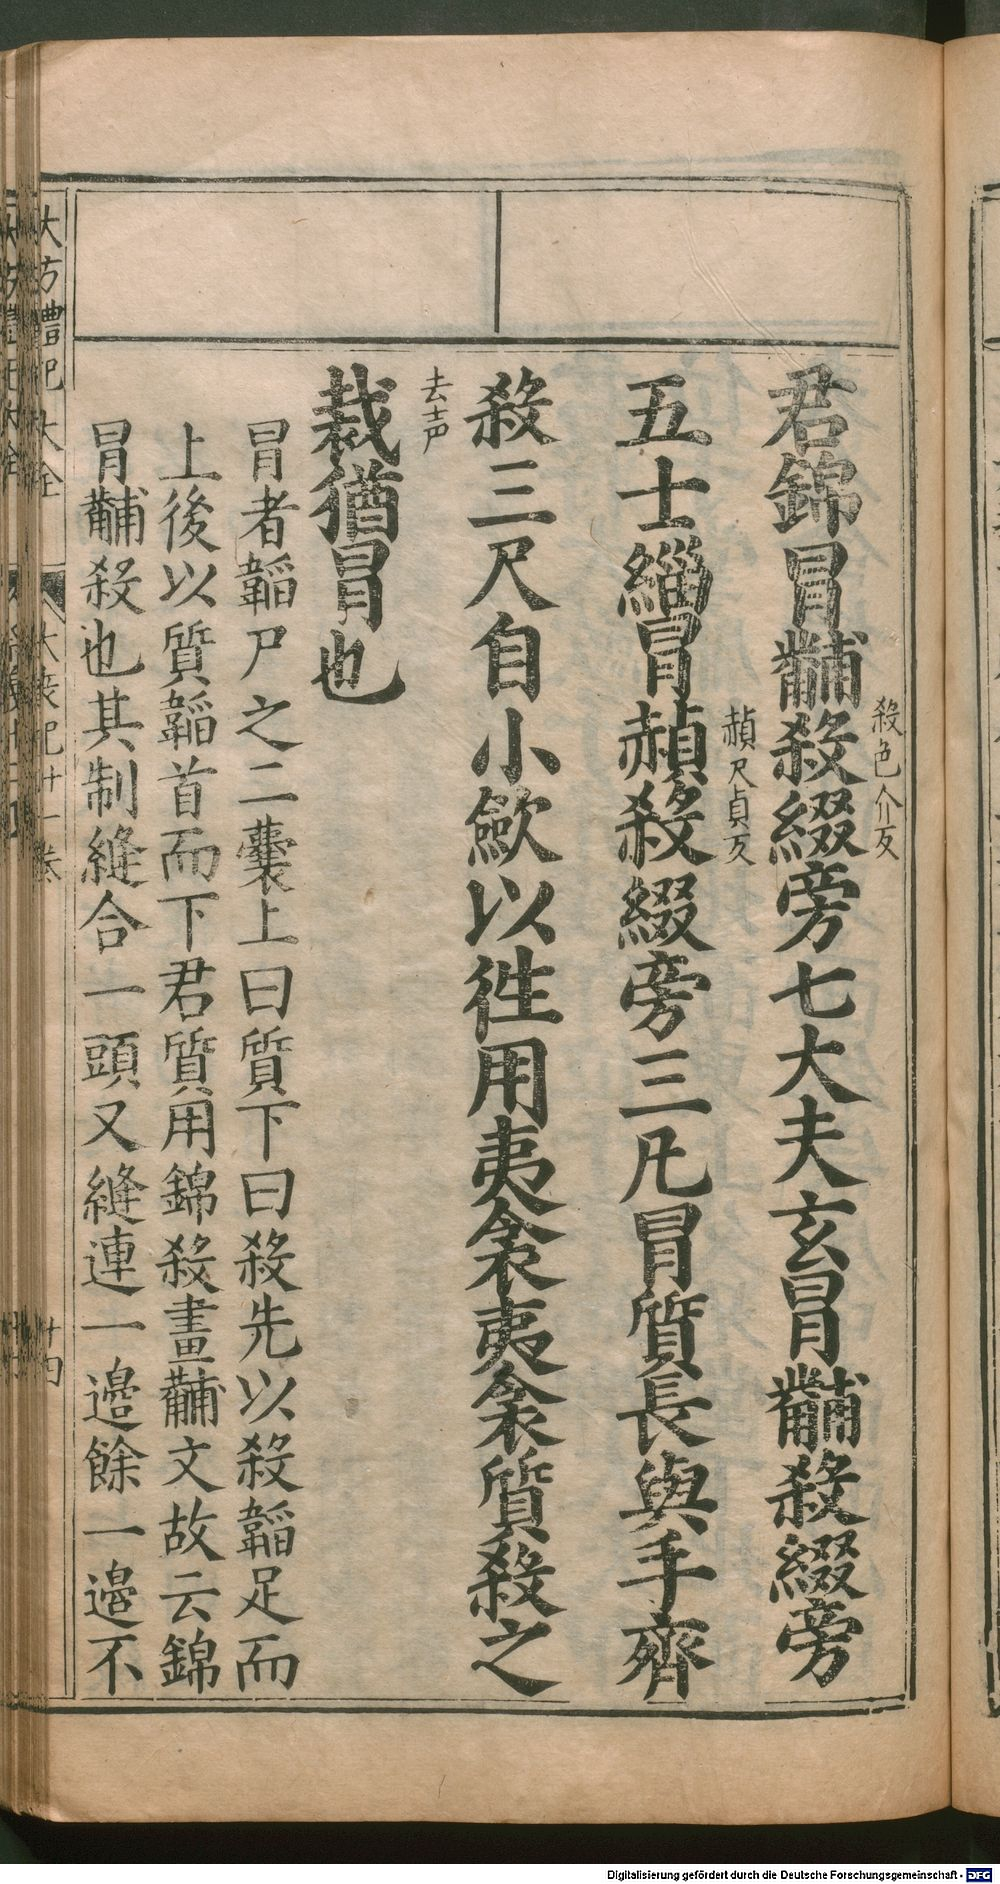 君錦冒黼殺綴旁七大夫玄冒黼殺綴旁
殺色介反
五士緇冒赬殺綴旁三凡冒質長與手齊
赬尺貞反
殺三尺自小歛以徃用夷衾夷衾質殺之
去声
裁猶冒也
冒者韜尸之二囊上曰質下曰殺先以殺韜足而
上後以質韜首而下君質用錦殺畫黼文故云錦
冒黼殺也其制縫合一頭又縫連一邉餘一邉不
大方禮記大全
大喪記廿一卷
十四
Digitalisierung gefördert durch die Deutsche Forschungsgemeinschaft - DFG